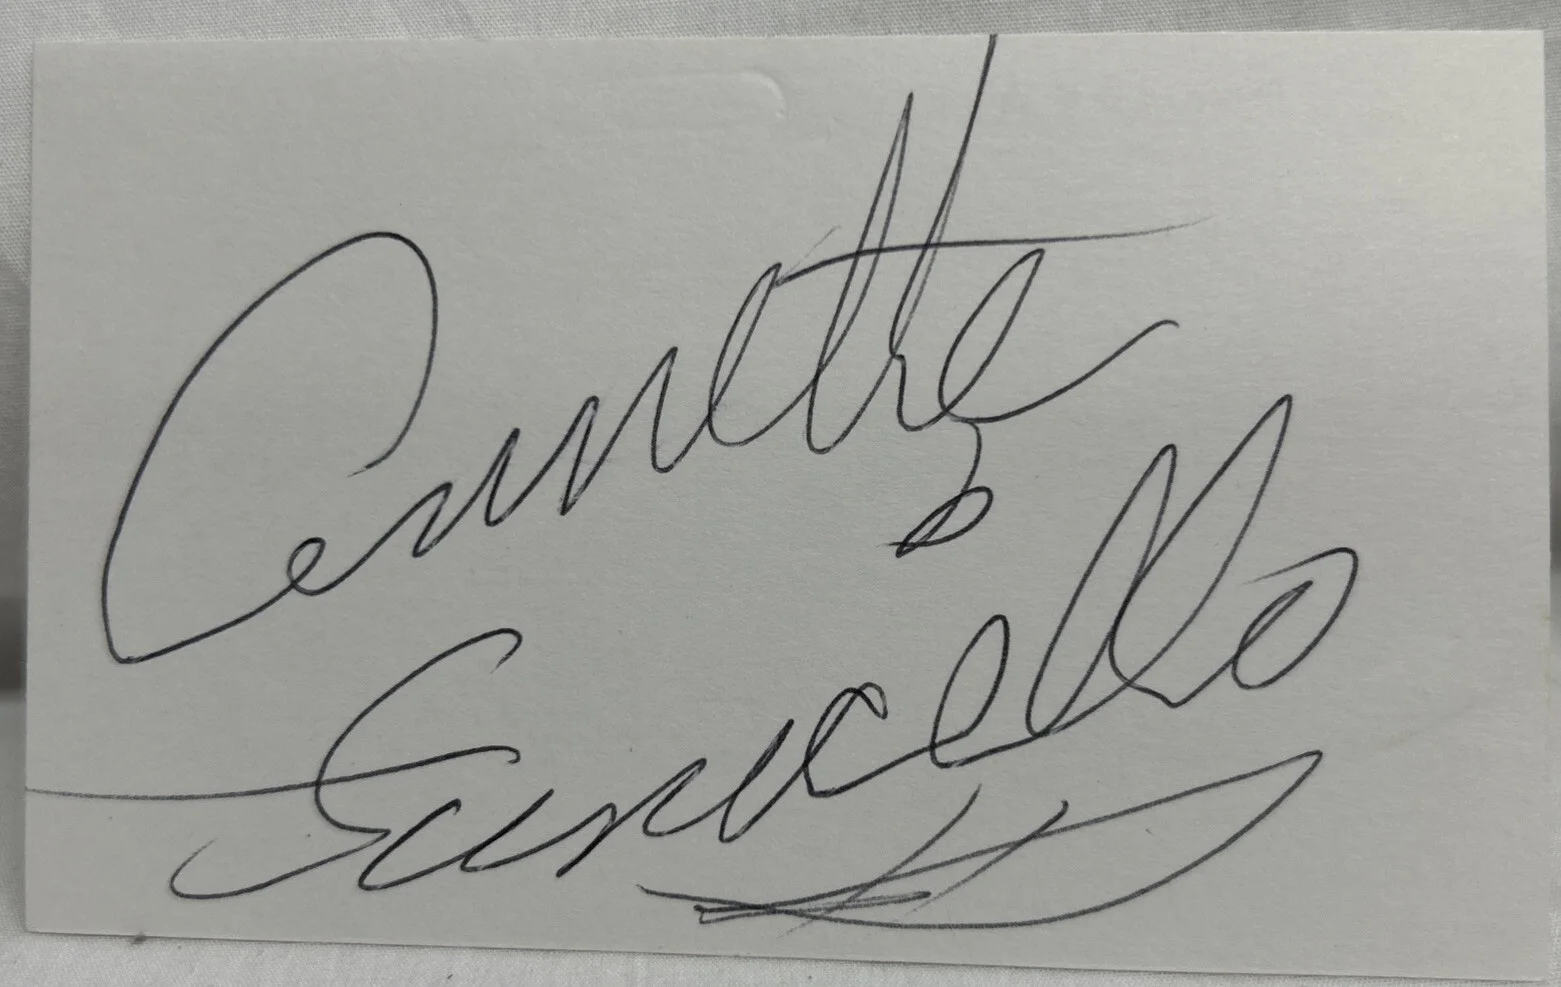 Annette
Funicello